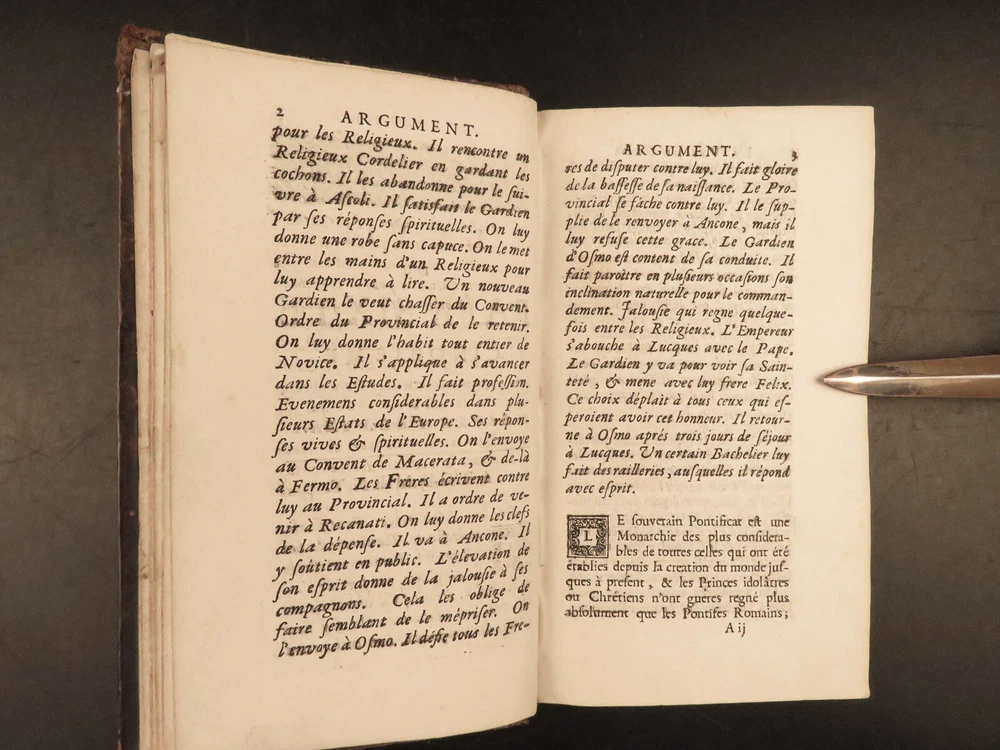 2 ARGUMENT.
pour les Religieux. Il rencontre un
Religieux Cordelier en gardant les
cochons. Il les abandonne pour le ſui-
vre à Aſcoli. Il ſatisfait le Gardien
par ſes réponſes ſpirituelles. On luy
donne une robe ſans capuce. On le met
entre les mains d'un Religieux pour
luy apprendre à lire. Un nouveau
Gardien le veut chaſſer du Convent.
Ordre du Provincial de le retenir.
On luy donne l'habit tout entier de
Novice. Il s'applique à s'avancer
dans les Eſtudes. Il fait profeſſion.
Evenemens conſiderables dans plu-
ſieurs Eſtats de l'Europe. Ses répon-
ſes vives & ſpirituelles. On l'envoye
au Convent de Macerata, & de-là
à Fermo. Les Freres écrivent contre
luy au Provincial. Il a ordre de ve-
nir à Recanati. On luy donne les clefs
de la dépenſe. Il va à Ancone. Il
y ſoûtient en public. L'élevation de
ſon eſprit donne de la jalouſie à ſes
compagnons. Cela les oblige de
faire ſemblant de le mépriſer. On
l'envoye à Oſmo. Il défie tous les Fre-
ARGUMENT. 3
res de diſputer contre luy. Il fait gloire
de la baſſeſſe de ſa naiſſance. Le Pro-
vincial ſe fâche contre luy. Il le ſup-
plie de le renvoyer à Ancone, mais il
luy refuſe cette grace. Le Gardien
d'Oſmo eſt content de ſa conduite. Il
fait paroître en pluſieurs occaſions ſon
inclination naturelle pour le comman-
dement. Jalouſie qui regne quelque-
fois entre les Religieux. L'Empereur
s'abouche à Lucques avec le Pape.
Le Gardien y va pour voir ſa Sain-
teté, & mene avec luy frere Felix.
Ce choix déplait à tous ceux qui eſ-
peroient avoir cet honneur. Il retour-
ne à Oſmo aprés trois jours de ſéjour
à Lucques. Un certain Bachelier luy
fait des railleries, auſquelles il répond
avec eſprit.
LE ſouverain Pontificat eſt une
Monarchie des plus conſidera-
bles de toutes celles qui ont été
établies depuis la creation du monde juſ-
ques à preſent, & les Princes idolâtres
ou Chrétiens n'ont gueres regné plus
abſolument que les Pontifes Romains;
A ij